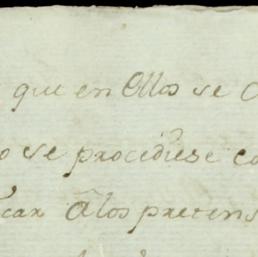 que en ellos se
o se procediese co
car a los pretens